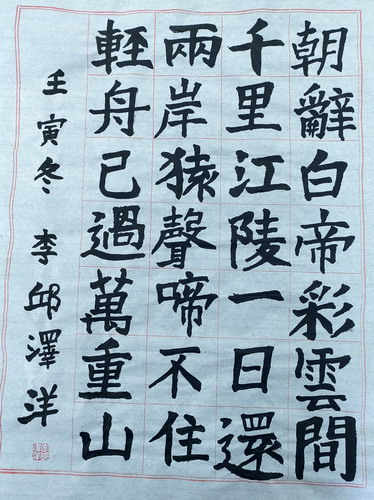 朝辭白帝彩雲間
千里江陵一日還
兩岸猿聲啼不住
輊舟已過萬重山
壬寅冬 李邱澤洋